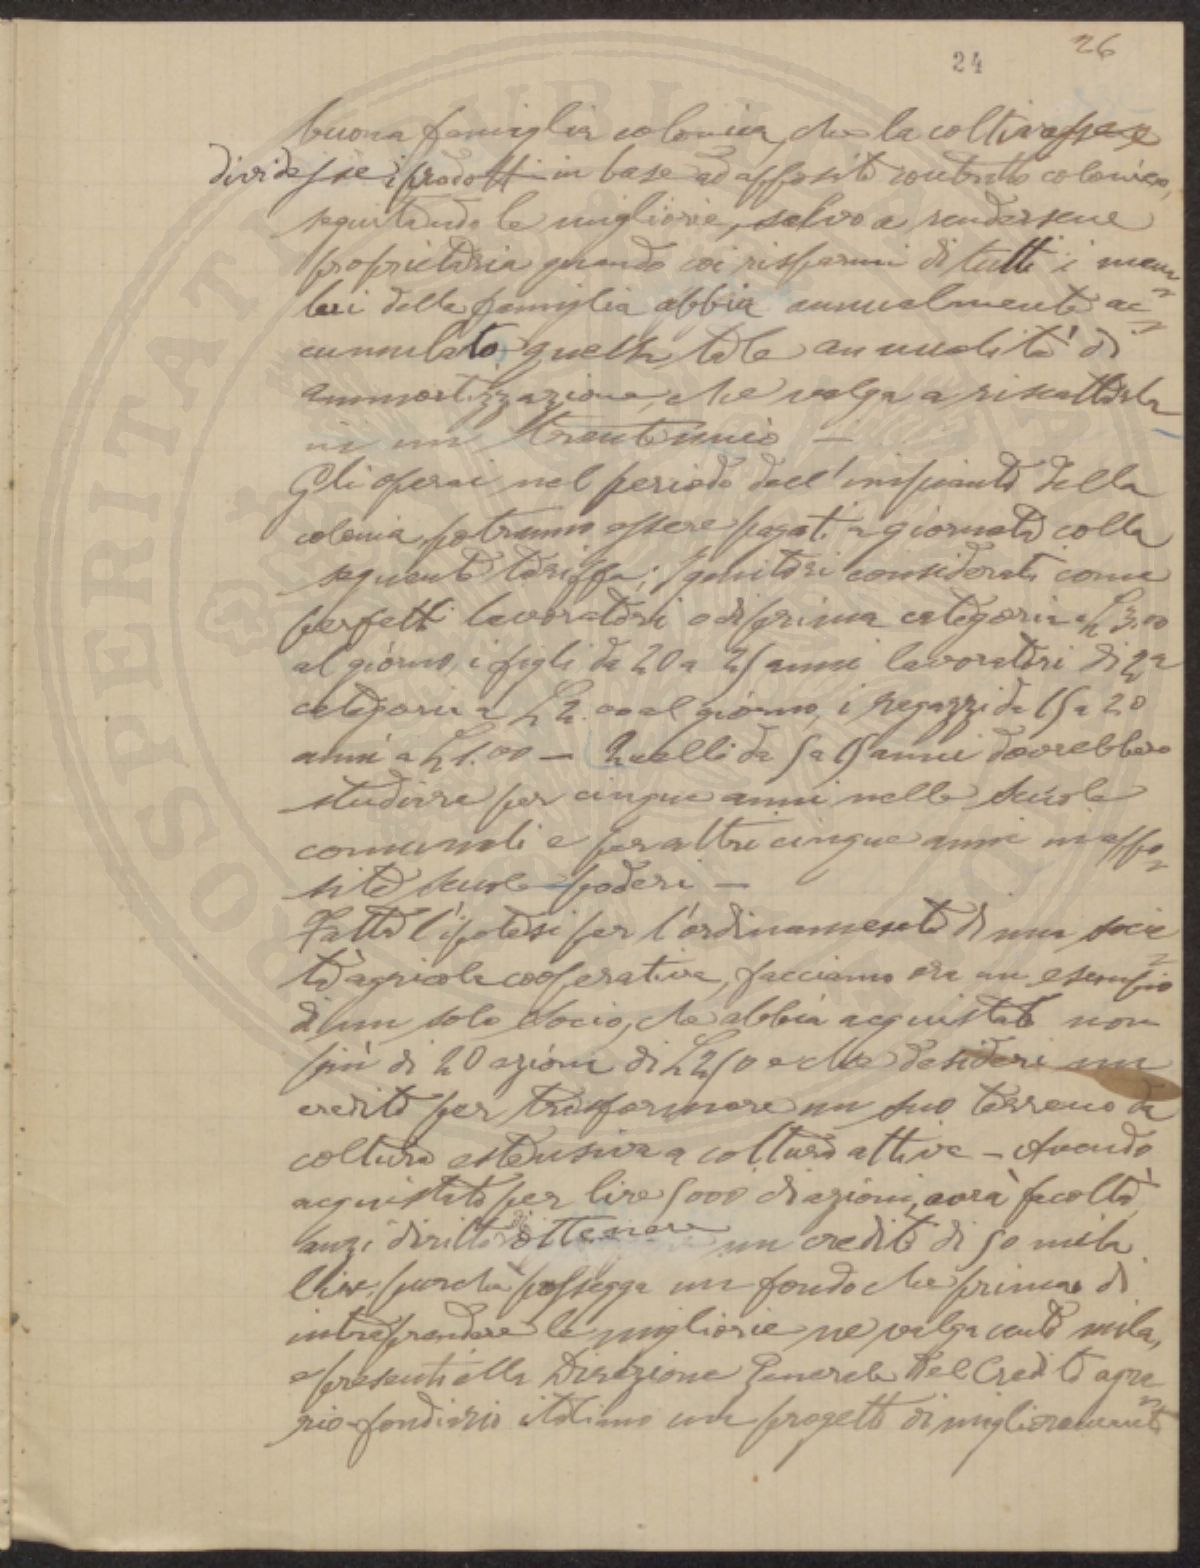 26
24
buona famiglia colonica, che la coltivasse e
dividesse i prodotti in base ad apposito contratto colonico,
seguitando le migliorie, salvo a rendersene
proprietaria quando coi risparmi di tutti i mem-
bri della famiglia abbia annualmente ac-
cumulato quella tale annualità di
ammortizzazione, che valga a riscattarla
in un trentennio —
Gli operai nel periodo dell'impianto della
colonia potranno essere pagati a giornata colla
seguente tariffa: genitori considerati come
perfetti lavoratori o di prima categoria a L 3,00
al giorno, i figli da 20 a 25 anni lavoratori di 2a
categoria a L 2.00 al giorno, i ragazzi da 15 a 20
anni a L 1.00 — Quelli da 5 a 15 anni dovrebbero
studiare per cinque anni nelle scuole
comunali e per altri cinque anni in appo-
site scuole-poderi —
Fatta l'ipotesi per l'ordinamento di una socie-
tà agricola cooperativa, facciamo ora un esempio
di un solo socio, che abbia acquistato non
più di 20 azioni di L 250 e che desideri un
credito per trasformare un suo terreno da
coltura estensiva a coltura attiva — Avendo
acquistato per lire 5000 di azioni, avrà facoltà
anzi diritto di ottenere un credito di 50 mila
lire, purchè possegga un fondo che prima di
intraprendere le migliorie ne valga cento mila,
e presenti alla Direzione Generale del Credito agra-
rio-fondiario italiano un progetto di miglioramento
PROSPERITATI PUBLICAE